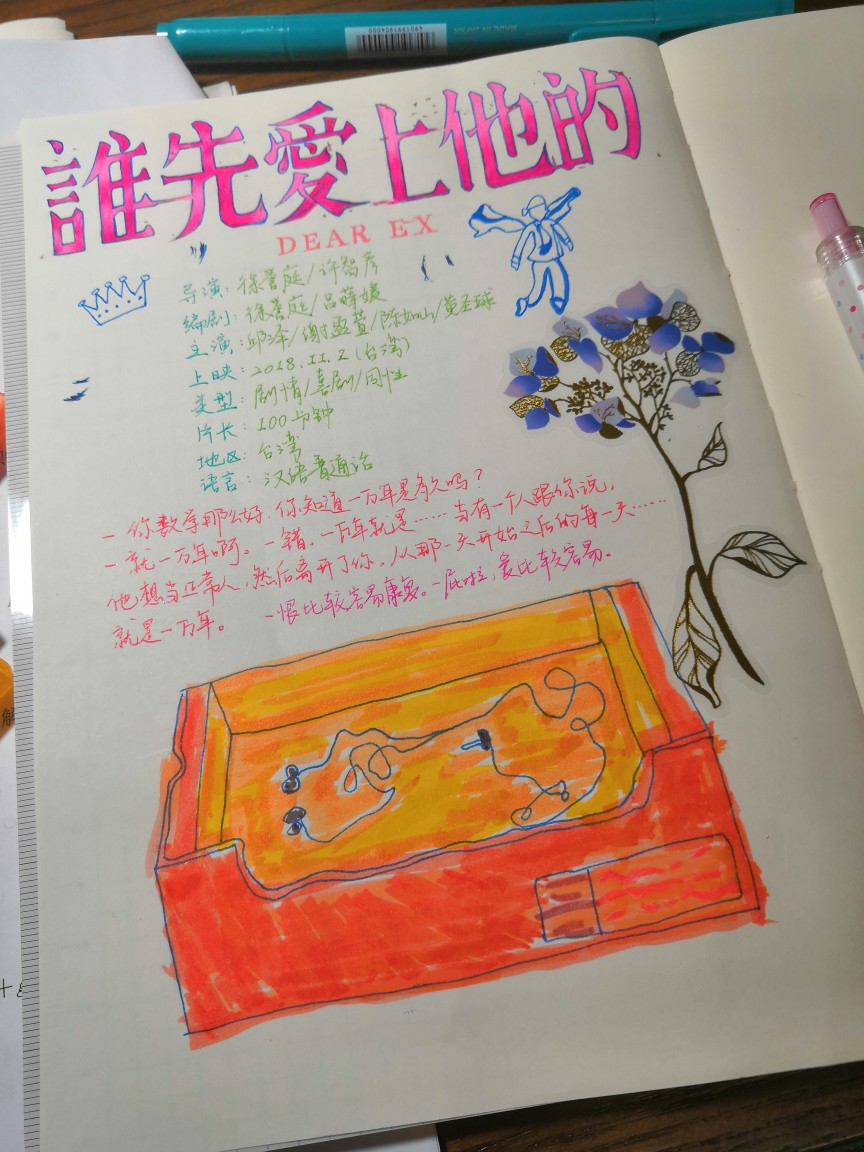 誰先愛上他的
DEAR EX
导演：徐誉庭/许智彦
编剧：徐誉庭/吕莳媛
主演：邱泽/谢盈萱/陈如山/黄圣球
上映：2018.11.2(台湾)
类型：剧情/喜剧/同性
片长：100分钟
地区：台湾
语言：汉语普通话
-你数学那么好，你知道一万年是多久吗？
-就一万年啊。-错。一万年就是……当有一个人跟你说，
他想当正常人，然后离开了你。从那一天开始之后的每一天……
就是一万年。 -恨比较容易康复。-屁啦，爱比较容易。
解